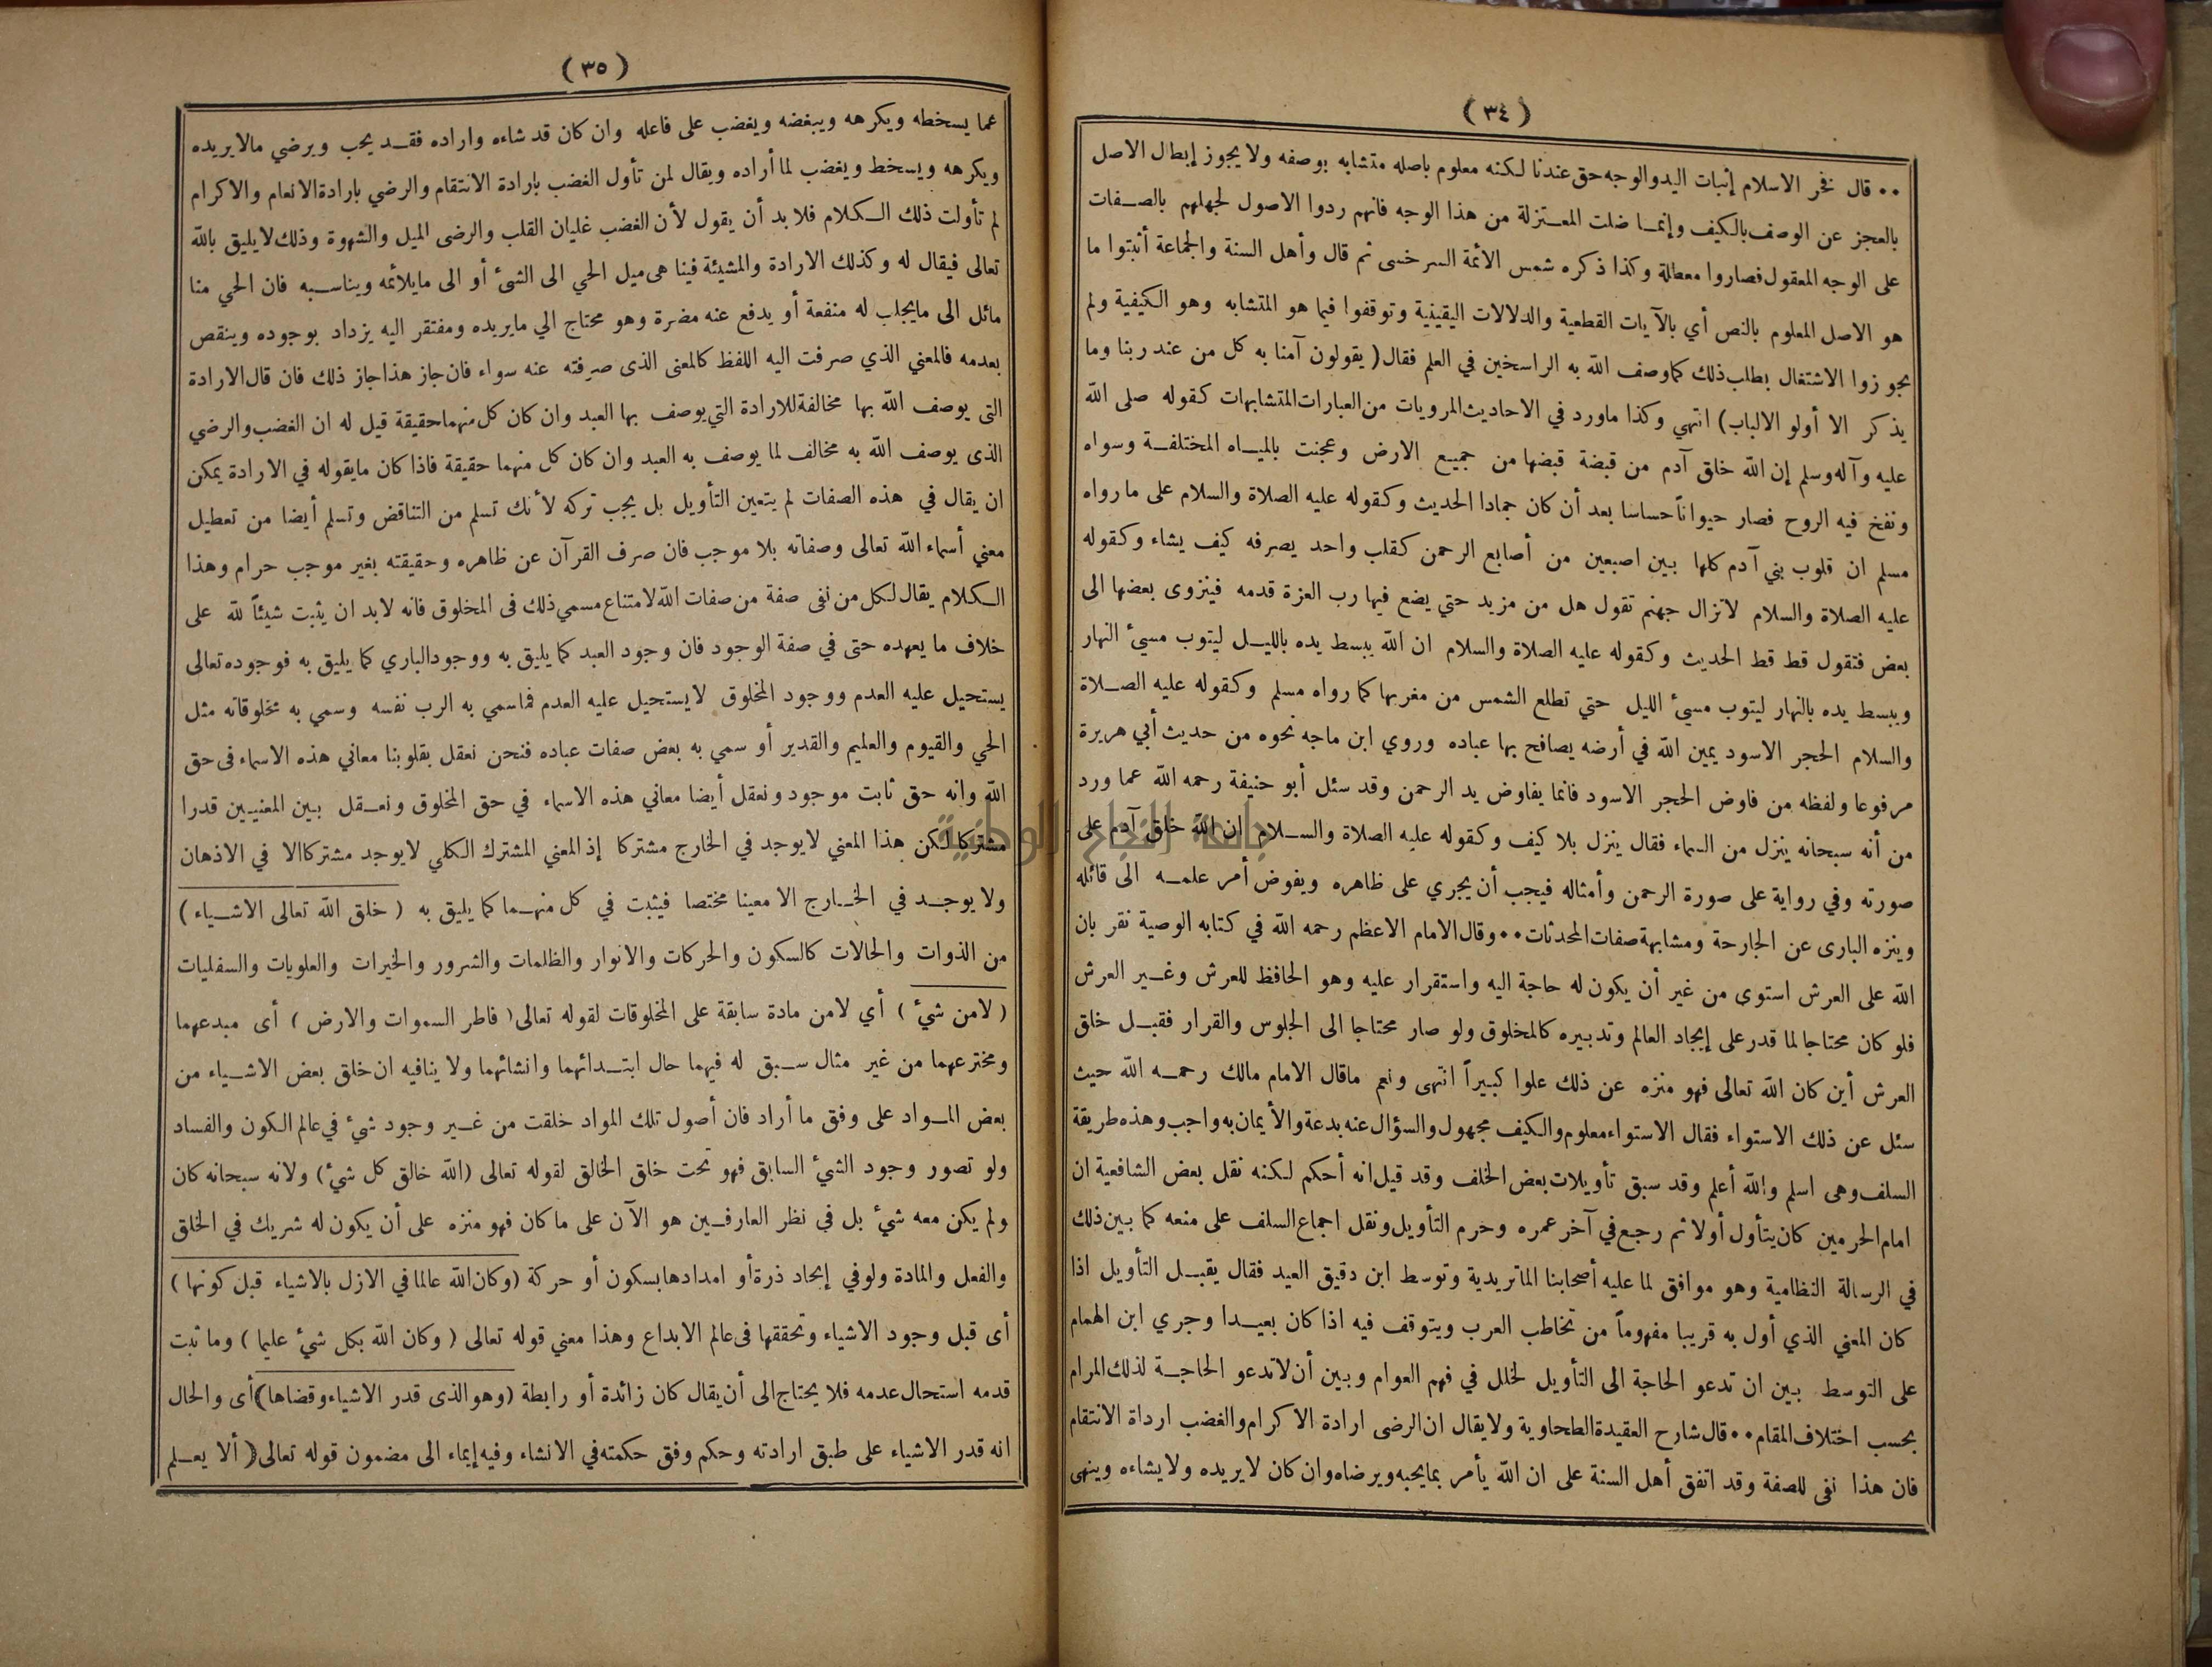 ( ٣٤ )
•• قال فخر الاسلام إثبات اليد والوجه حق عندنا لكنه معلوم باصله متشابه بوصفه ولا يجوز إبطال الاصل
بالعجز عن الوصف بالكيف وإنما ضلت المعتزلة من هذا الوجه فانهم ردوا الاصول لجهلهم بالصفات
على الوجه المعقول فصاروا معطلة وكذا ذكره شمس الأئمة السرخسى ثم قال وأهل السنة والجماعة أثبتوا ما
هو الاصل المعلوم بالنص أي بالآيات القطعية والدلالات اليقينية وتوقفوا فيما هو المتشابه وهو الكيفية ولم
يجوزوا الاشتغال بطلب ذلك كما وصف الله به الراسخين في العلم فقال ( يقولون آمنا به كل من عند ربنا وما
يذكر الا أولو الالباب ) انتهي وكذا ما ورد في الاحاديث المرويات من العبارات المتشابهات كقوله صلى الله
عليه وآله وسلم إن الله خلق آدم من قبضة قبضها من جميع الارض وعجنت بالمياه المختلفة وسواه
ونفخ فيه الروح فصار حيواناً حساسا بعد أن كان جمادا الحديث وكقوله عليه الصلاة والسلام على ما رواه
مسلم ان قلوب بني آدم كلها بين اصبعين من أصابع الرحمن كقلب واحد يصرفه كيف يشاء وكقوله
عليه الصلاة والسلام لا تزال جهنم تقول هل من مزيد حتي يضع فيها رب العزة قدمه فينزوى بعضها الى
بعض فتقول قط قط الحديث وكقوله عليه الصلاة والسلام ان الله يبسط يده بالليل ليتوب مسيء النهار
ويبسط يده بالنهار ليتوب مسيء الليل حتي تطلع الشمس من مغربها كما رواه مسلم وكقوله عليه الصلاة
والسلام الحجر الاسود يمين الله في أرضه يصافح بها عباده وروي ابن ماجه نحوه من حديث أبي هريرة
مرفوعا ولفظه من فاوض الحجر الاسود فانما يفاوض يد الرحمن وقد سئل أبو حنيفة رحمه الله عما ورد
من أنه سبحانه ينزل من السماء فقال ينزل بلا كيف وكقوله عليه الصلاة والسلام ان الله خلق آدم على
صورته وفي رواية على صورة الرحمن وأمثاله فيجب أن يجري على ظاهره ويفوض أمر علمه الى قائله
وينزه البارى عن الجارحة ومشابهة صفات المحدثات •• وقال الامام الاعظم رحمه الله في كتابه الوصية نقر بان
الله على العرش استوى من غير أن يكون له حاجة اليه واستقرار عليه وهو الحافظ للعرش وغير العرش
فلو كان محتاجا لما قدر على إيجاد العالم وتدبيره كالمخلوق ولو صار محتاجا الى الجلوس والقرار فقبل خلق
العرش أين كان الله تعالى فهو منزه عن ذلك علوا كبيراً انتهى ونعم ماقال الامام مالك رحمه الله حيث
سئل عن ذلك الاستواء فقال الاستواء معلوم والكيف مجهول والسؤال عنه بدعة والأيمان به واجب وهذه طريقة
السلف وهى اسلم والله أعلم وقد سبق تأويلات بعض الخلف وقد قيل انه أحكم لكنه نقل بعض الشافعية ان
امام الحرمين كان يتأول أولا ثم رجع في آخر عمره وحرم التأويل ونقل اجماع السلف على منعه كما بين ذلك
في الرسالة النظامية وهو موافق لما عليه أصحابنا الماتريدية وتوسط ابن دقيق العيد فقال يقبل التأويل اذا
كان المعني الذي أول به قريبا مفهوماً من تخاطب العرب ويتوقف فيه اذا كان بعيدا وجري ابن الهمام
على التوسط بين ان تدعو الحاجة الى التأويل لخلل في فهم العوام وبين أن لا تدعو الحاجة لذلك المرام
بحسب اختلاف المقام •• قال شارح العقيدة الطحاوية ولا يقال ان الرضى ارادة الاكرام والغضب ارداة الانتقام
فان هذا نفى للصفة وقد اتفق أهل السنة على ان الله يأمر بما يحبه ويرضاه وان كان لا يريده ولا يشاءه وينهى
( ٣٥ )
عما يسخطه ويكرهه ويبغضه ويغضب على فاعله وان كان قد شاءه واراده فقد يحب ويرضي مالا يريده
ويكرهه ويسخط ويغضب لما أراده ويقال لمن تأول الغضب بإرادة الانتقام والرضي بارادة الانعام والاكرام
لم تأولت ذلك الكلام فلا بد أن يقول لأن الغضب غليان القلب والرضى الميل والشهوة وذلك لا يليق بالله
تعالى فيقال له وكذلك الارادة والمشيئة فينا هى ميل الحي الى الشئ أو الى مايلائمه ويناسبه فان الحي منا
مائل الى مايجلب له منفعة أو يدفع عنه مضرة وهو محتاج الي مايريده ومفتقر اليه يزداد بوجوده وينقص
بعدمه فالمعني الذي صرفت اليه اللفظ كالمعنى الذى صرفته عنه سواء فان جاز هذا جاز ذلك فان قال الارادة
التى يوصف الله بها مخالفة للارادة التي يوصف بها العبد وان كان كل منهما حقيقة قيل له ان الغضب والرضي
الذى يوصف الله به مخالف لما يوصف به العبد وان كان كل منهما حقيقة فاذا كان مايقوله في الارادة يمكن
ان يقال في هذه الصفات لم يتعين التأويل بل يجب تركه لأنك تسلم من التناقض وتسلم أيضا من تعطيل
معني أسماء الله تعالى وصفاته بلا موجب فان صرف القرآن عن ظاهره وحقيقته بغير موجب حرام وهذا
الكلام يقال لكل من نفى صفة من صفات الله لامتناع مسمي ذلك فى المخلوق فانه لابد ان يثبت شيئاً لله على
خلاف ما يعهده حتى في صفة الوجود فان وجود العبد كما يليق به ووجود الباري كما يليق به فوجوده تعالى
يستحيل عليه العدم ووجود المخلوق لا يستحيل عليه العدم فماسمي به الرب نفسه وسمي به مخلوقاته مثل
الحي والقيوم والعليم والقدير أو سمي به بعض صفات عباده فنحن نعقل بقلوبنا معاني هذه الاسماء فى حق
الله وانه حق ثابت موجود ونعقل أيضا معاني هذه الاسماء في حق المخلوق ونعقل بين المعنيين قدرا
مشتركا لكن هذا المعني لا يوجد في الخارج مشتركا إذ المعني المشترك الكلي لا يوجد مشتركا الا في الاذهان
ولا يوجد في الخارج الا معينا مختصا فيثبت في كل منهما كما يليق به ( خلق الله تعالى الاشياء )
من الذوات والحالات كالسكون والحركات والانوار والظلمات والشرور والخيرات والعلويات والسفليات
( لا من شئ ) أي لامن مادة سابقة على المخلوقات لقوله تعالى ( فاطر السموات والارض ) أى مبدعهما
ومخترعهما من غير مثال سبق له فيهما حال ابتدائهما وانشائهما ولا ينافيه ان خلق بعض الاشياء من
بعض المواد على وفق ما أراد فان أصول تلك المواد خلقت من غير وجود شئ في عالم الكون والفساد
ولو تصور وجود الشئ السابق فهو تحت خلق الخالق لقوله تعالى ( الله خالق كل شئ ) ولانه سبحانه كان
ولم يكن معه شئ بل في نظر العارفين هو الآن على ما كان فهو منزه على أن يكون له شريك في الخلق
والفعل والمادة ولو في إيجاد ذرة أو امدادها بسكون أو حركة ( وكان الله عالما في الازل بالاشياء قبل كونها )
أى قبل وجود الاشياء وتحققها فى عالم الابداع وهذا معني قوله تعالى ( وكان الله بكل شئ عليما ) وما ثبت
قدمه استحال عدمه فلا يحتاج الى أن يقال كان زائدة أو رابطة ( وهو الذى قدر الاشياء وقضاها ) أى والحال
انه قدر الاشياء على طبق ارادته وحكم وفق حكمته في الانشاء وفيه إيماء الى مضمون قوله تعالى ( ألا يعلم
جامعة النجاح الوطنية